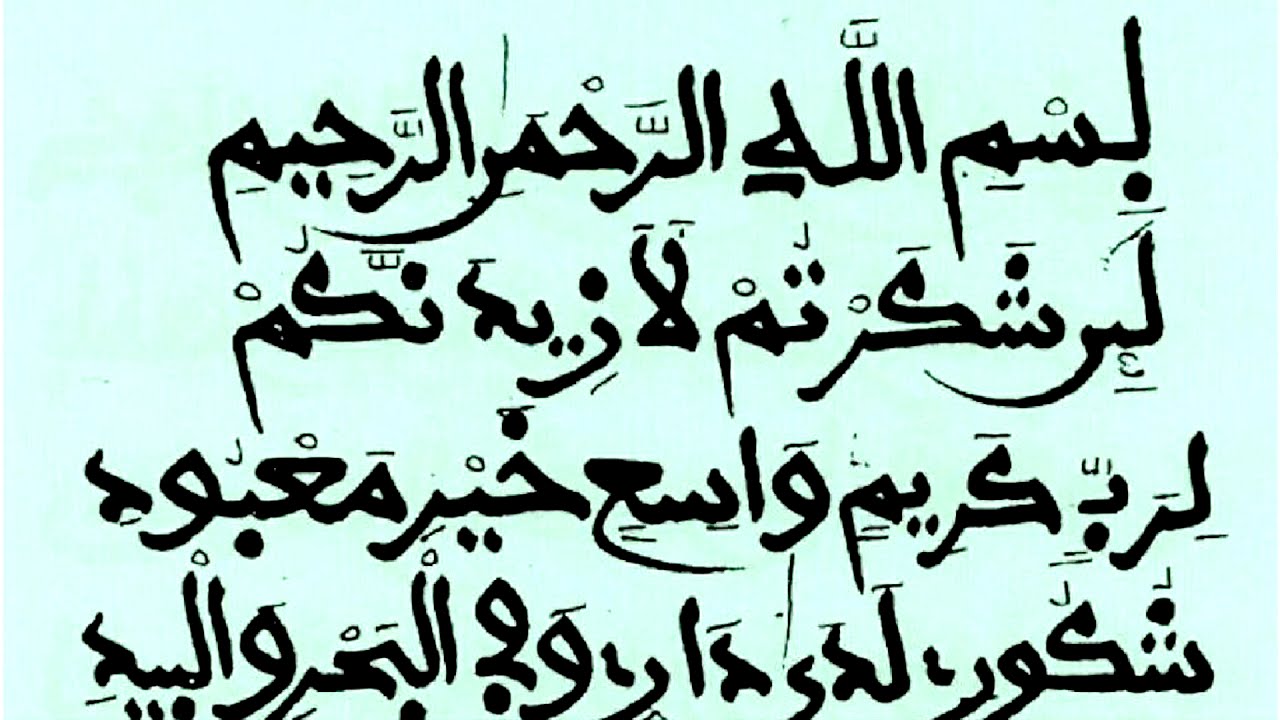 بِسْمِ اللَّهِ الرَّحْمَٰنِ الرَّحِيمِ
لَئِن شَكَرْتُمْ لَأَزِيدَنَّكُمْ
لِرَبٍّ كَرِيمٍ وَاسِعٍ خَيْرِ مَعْبُودِ
شُكُورِے لَدَىٰ دَارِے وَفِي الْبَحْرِ وَالْبِيدِ